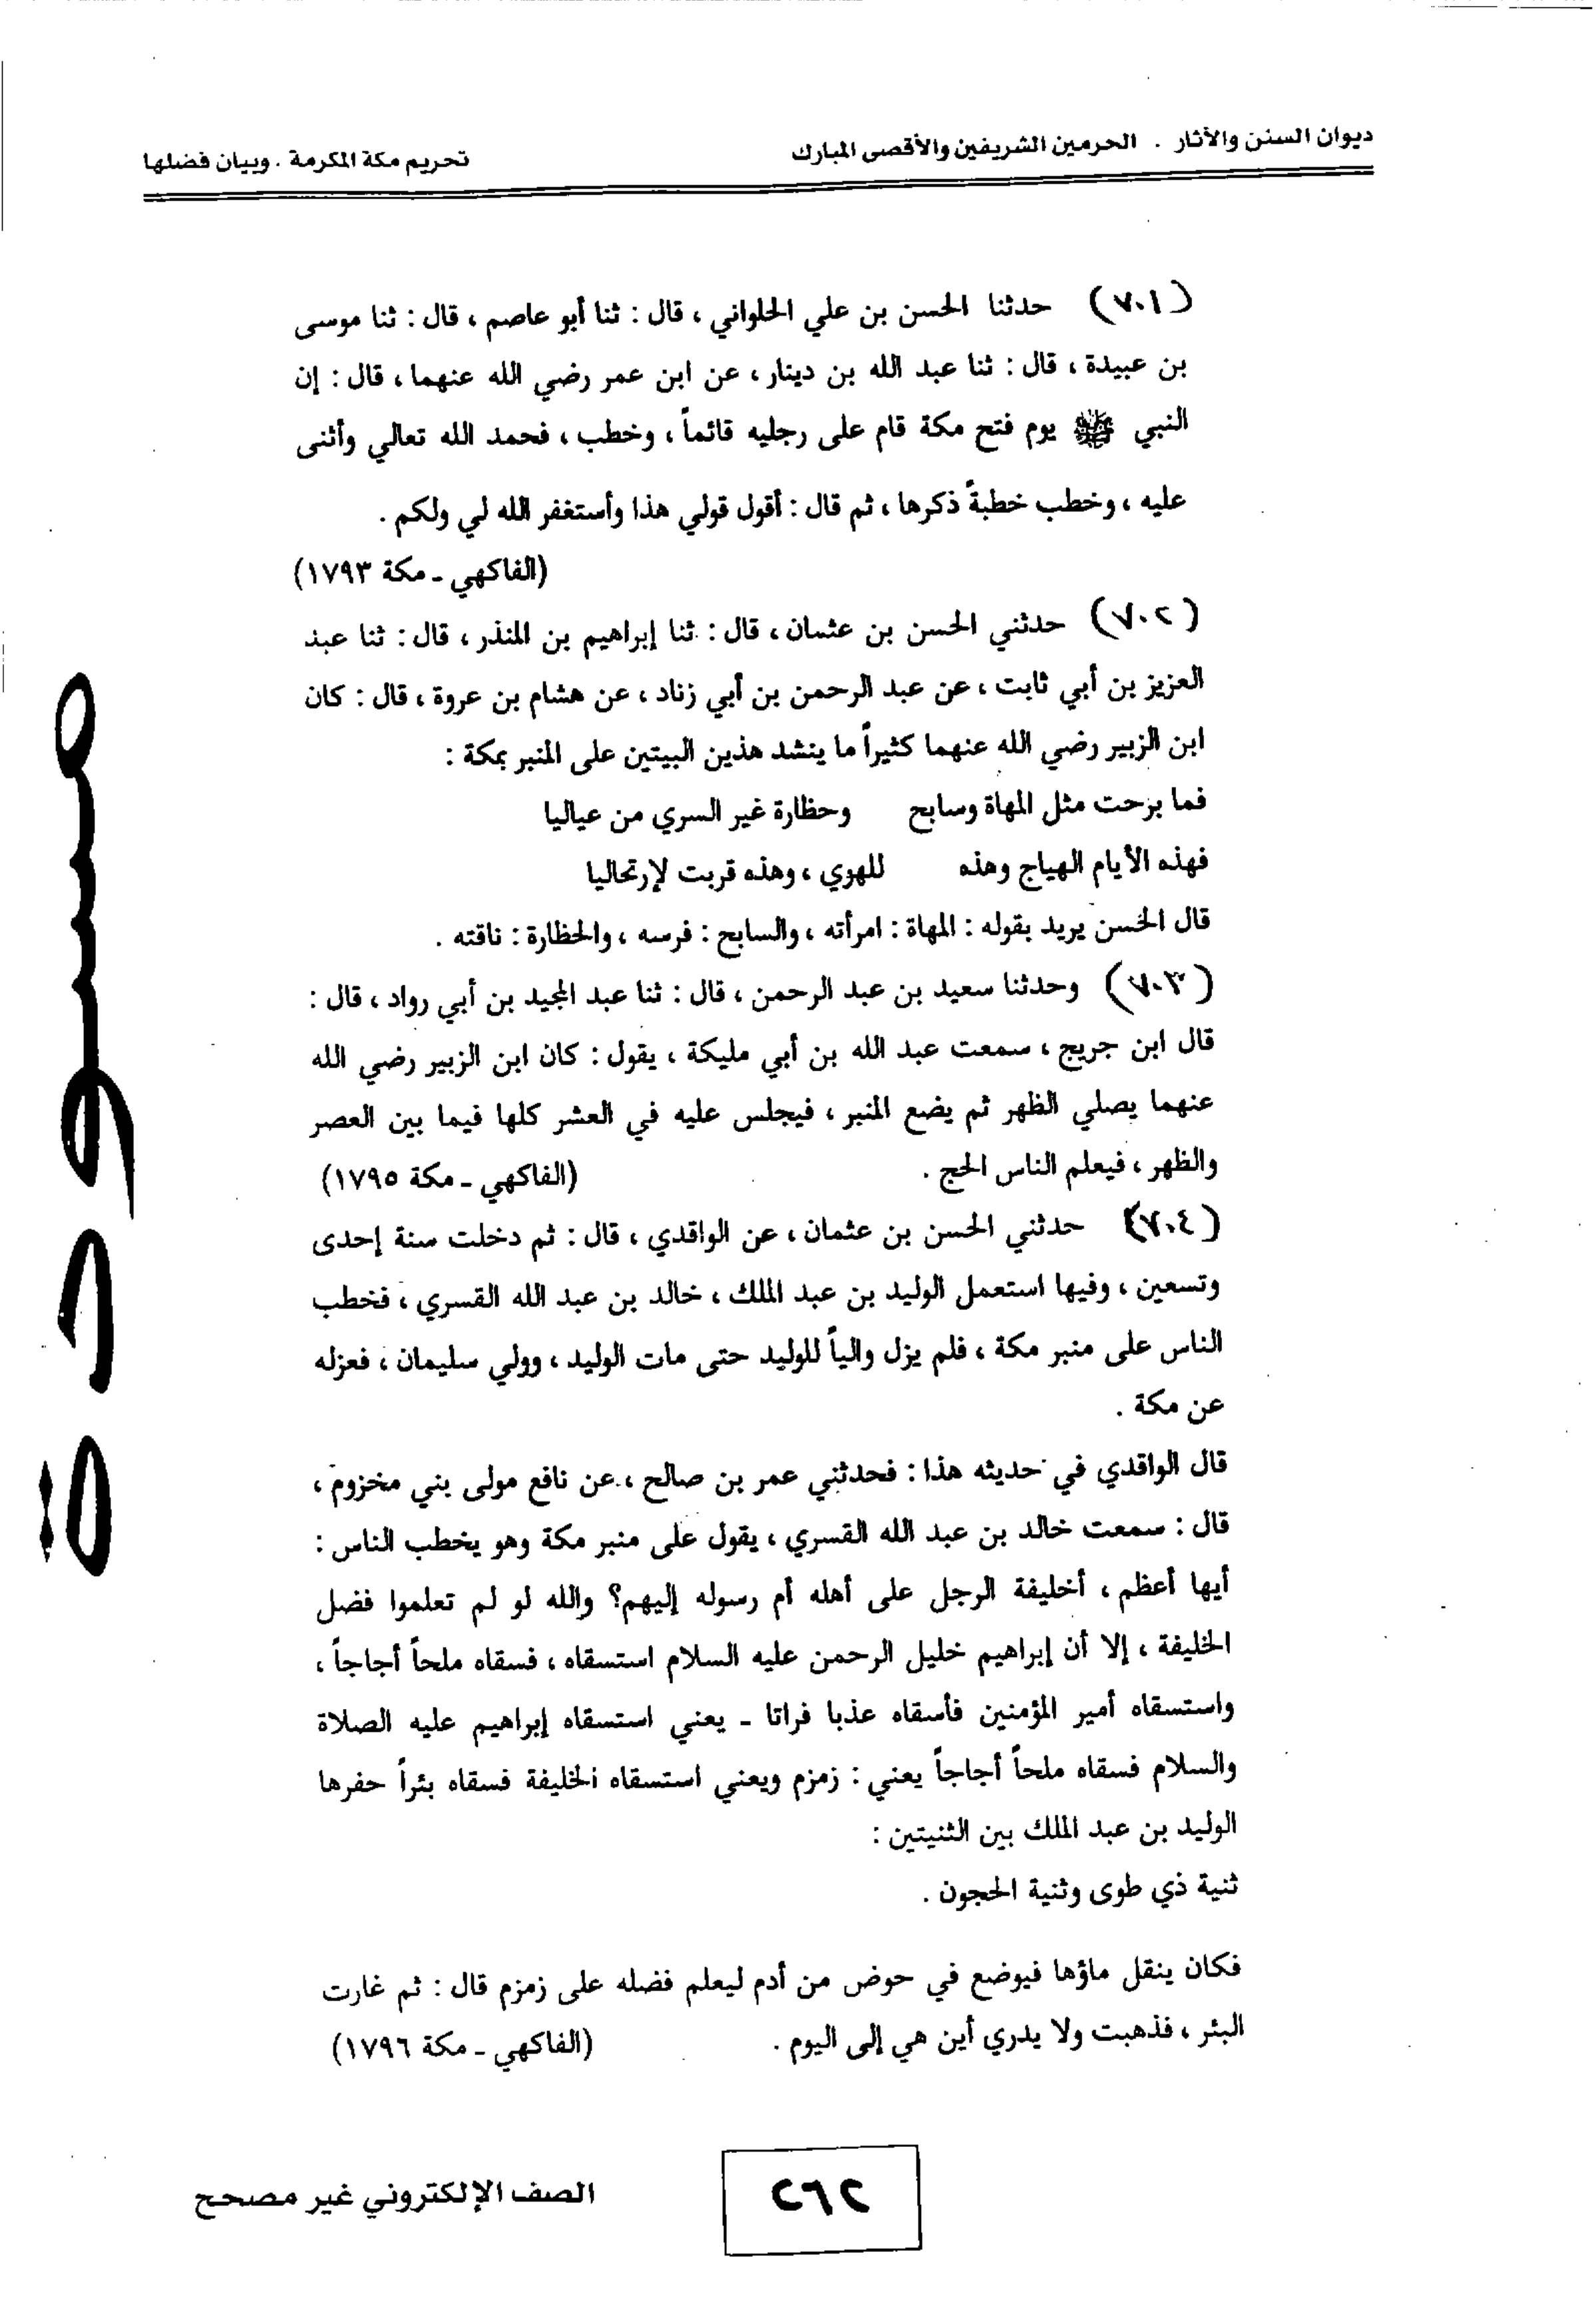 ديوان السنن والآثار . الحرمين الشريفين والأقصى المبارك
تحريم مكة المكرمة . وبيان فضلها
(٧٠١) حدثنا الحسن بن علي الحلواني ، قال : ثنا أبو عاصم ، قال : ثنا موسى
بن عبيدة ، قال : ثنا عبد الله بن دينار ، عن ابن عمر رضي الله عنهما ، قال : إن
النبي ﷺ يوم فتح مكة قام على رجليه قائماً ، وخطب ، فحمد الله تعالي وأثنى
عليه ، وخطب خطبةً ذكرها ، ثم قال : أقول قولي هذا وأستغفر الله لي ولكم .
(الفاكهي ـ مكة ١٧٩٣)
(٧٠٢) حدثني الحسن بن عثمان ، قال : ثنا إبراهيم بن المنذر ، قال : ثنا عبد
العزيز بن أبي ثابت ، عن عبد الرحمن بن أبي زناد ، عن هشام بن عروة ، قال : كان
ابن الزبير رضي الله عنهما كثيراً ما ينشد هذين البيتين على المنبر بمكة :
فما برحت مثل المهاة وسابح وحظارة غير السري من عياليا
فهذه الأيام الهياج وهذه للهوي ، وهذه قربت لإرتحاليا
قال الحسن يريد بقوله : المهاة : امرأته ، والسابح : فرسه ، والحظارة : ناقته .
(٧٠٣) وحدثنا سعيد بن عبد الرحمن ، قال : ثنا عبد المجيد بن أبي رواد ، قال :
قال ابن جريج ، سمعت عبد الله بن أبي مليكة ، يقول : كان ابن الزبير رضي الله
عنهما يصلي الظهر ثم يضع المنبر ، فيجلس عليه في العشر كلها فيما بين العصر
والظهر ، فيعلم الناس الحج . (الفاكهي ـ مكة ١٧٩٥)
(٧٠٤) حدثني الحسن بن عثمان ، عن الواقدي ، قال : ثم دخلت سنة إحدى
وتسعين ، وفيها استعمل الوليد بن عبد الملك ، خالد بن عبد الله القسري ، فخطب
الناس على منبر مكة ، فلم يزل والياً للوليد حتى مات الوليد ، وولي سليمان ، فعزله
عن مكة .
قال الواقدي في حديثه هذا : فحدثني عمر بن صالح ، عن نافع مولى بني مخزوم ،
قال : سمعت خالد بن عبد الله القسري ، يقول على منبر مكة وهو يخطب الناس :
أيها أعظم ، أخليفة الرجل على أهله أم رسوله إليهم؟ والله لو لم تعلموا فضل
الخليفة ، إلا أن إبراهيم خليل الرحمن عليه السلام استسقاه ، فسقاه ملحاً أجاجاً ،
واستسقاه أمير المؤمنين فأسقاه عذبا فراتا ـ يعني استسقاه إبراهيم عليه الصلاة
والسلام فسقاه ملحاً أجاجاً يعني : زمزم ويعني استسقاه الخليفة فسقاه بئراً حفرها
الوليد بن عبد الملك بين الثنيتين :
ثنية ذي طوى وثنية الحجون .
فكان ينقل ماؤها فيوضع في حوض من أدم ليعلم فضله على زمزم قال : ثم غارت
البئر ، فذهبت ولا يدري أين هي إلى اليوم . (الفاكهي ـ مكة ١٧٩٦)
مسودة
٢٦٢
الصف الإلكتروني غير مصحح